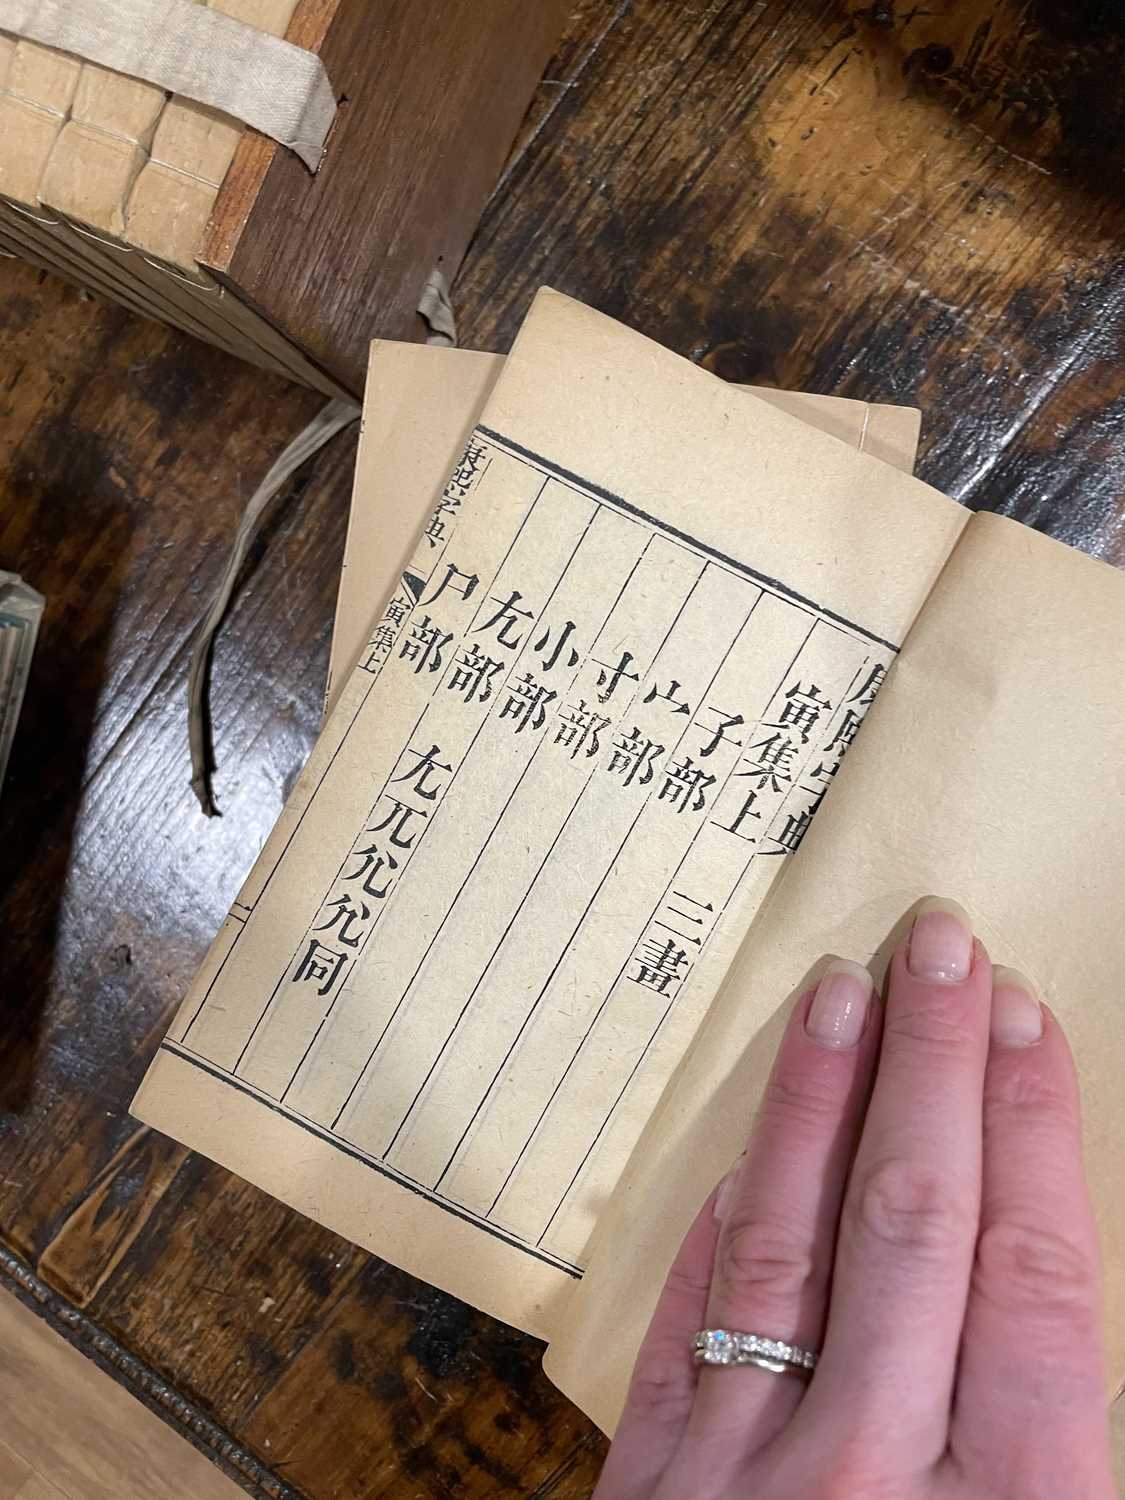 康熙字典
寅集上
子部 三畫
宀部
寸部
小部
尢部 尢兀尣允同
尸部
康熙字典 寅集上 一